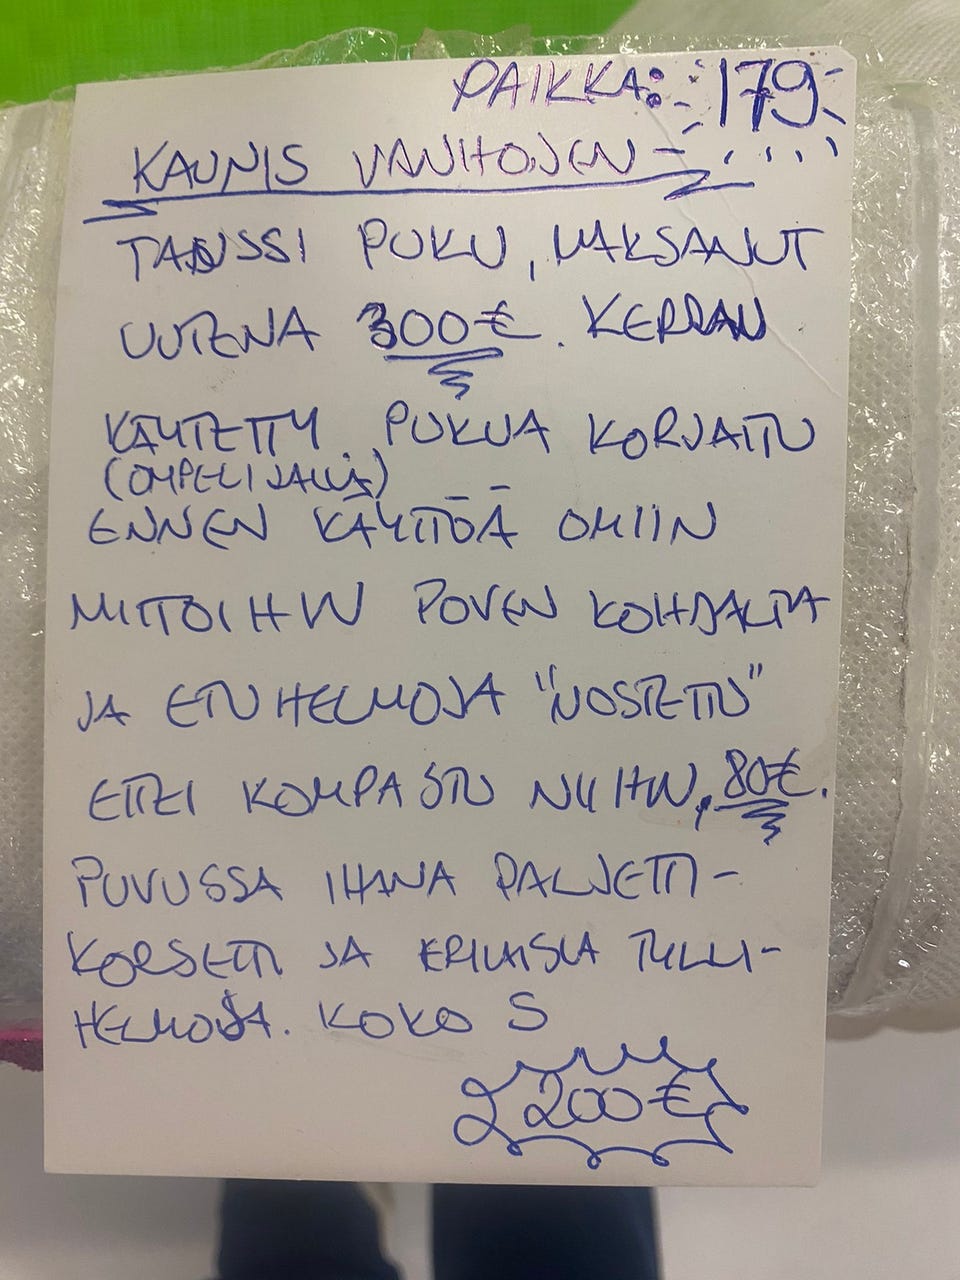 PAIKKA: 179
KAUNIS VANHOJEN-
TANSSI PUKU, MAKSANUT
UUTENA 300€. KERRAN
KÄYTETTY. PUKUA KORJATTU
(OMPELIJALLA)
ENNEN KÄYTTÖÄ OMIIN
MITTOIHIN POVEN KOHDALTA
JA ETUHELMOJA "NOSTETTU"
ETTEI KOMPASTU NIIHIN, 80€.
PUVUSSA IHANA PALJETTI-
KORSETTI JA ERILAISIA TYLLI-
HELMOJA. KOKO S
200€